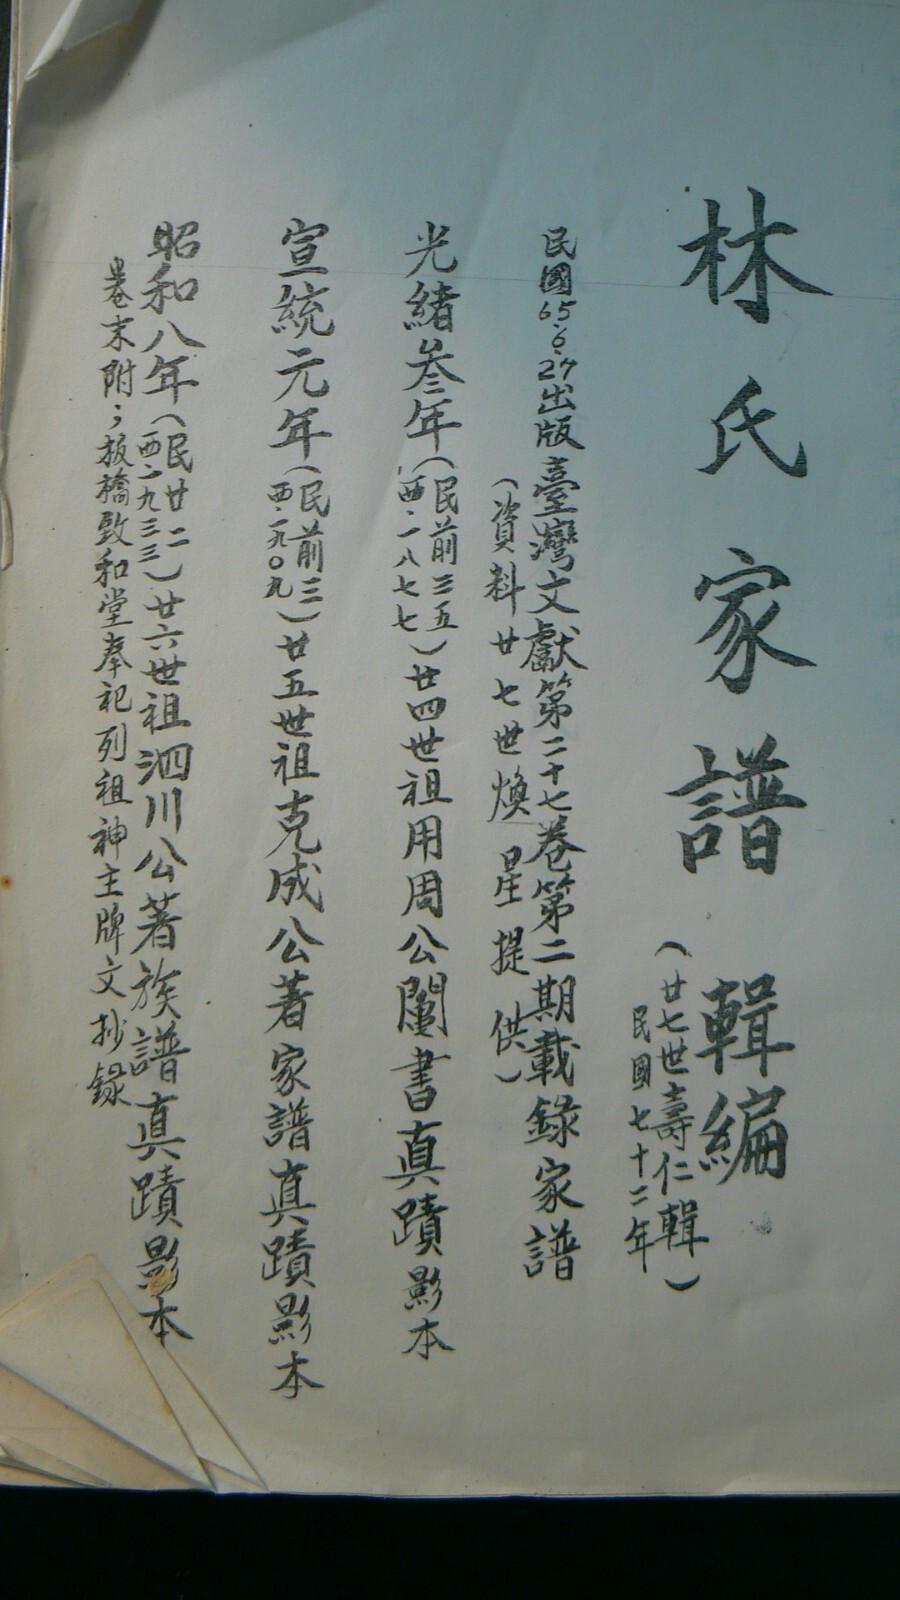 林氏家譜輯編
(廿七世壽仁輯)
民國七十二年
民國65.6.27出版臺灣文獻第二十七卷第二期載錄家譜
(資料廿七世煥星提供)
光緒叁年(民前三五 西.一八七七)廿四世祖用周公鬮書真蹟影本
宣統元年(民前三 西.一九〇九)廿五世祖克成公著家譜真蹟影本
昭和八年(民廿二 西.一九三三)廿六世祖泗川公著族譜真蹟影本
卷末附;板橋敦和堂奉祀列祖神主牌文抄錄